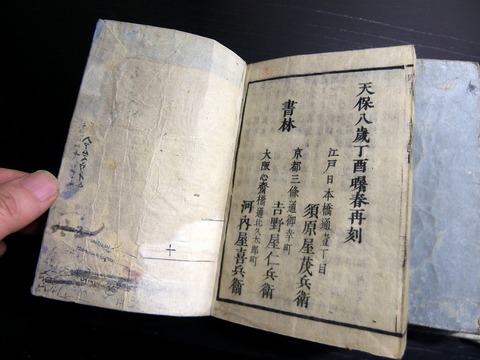 天保八歳丁酉曙春再刻
江戸日本橋通壹丁目
須原屋茂兵衛
書林
京都三條通御幸町
吉野屋仁兵衛
大阪心斎橋通北久太郎町
河内屋喜兵衛